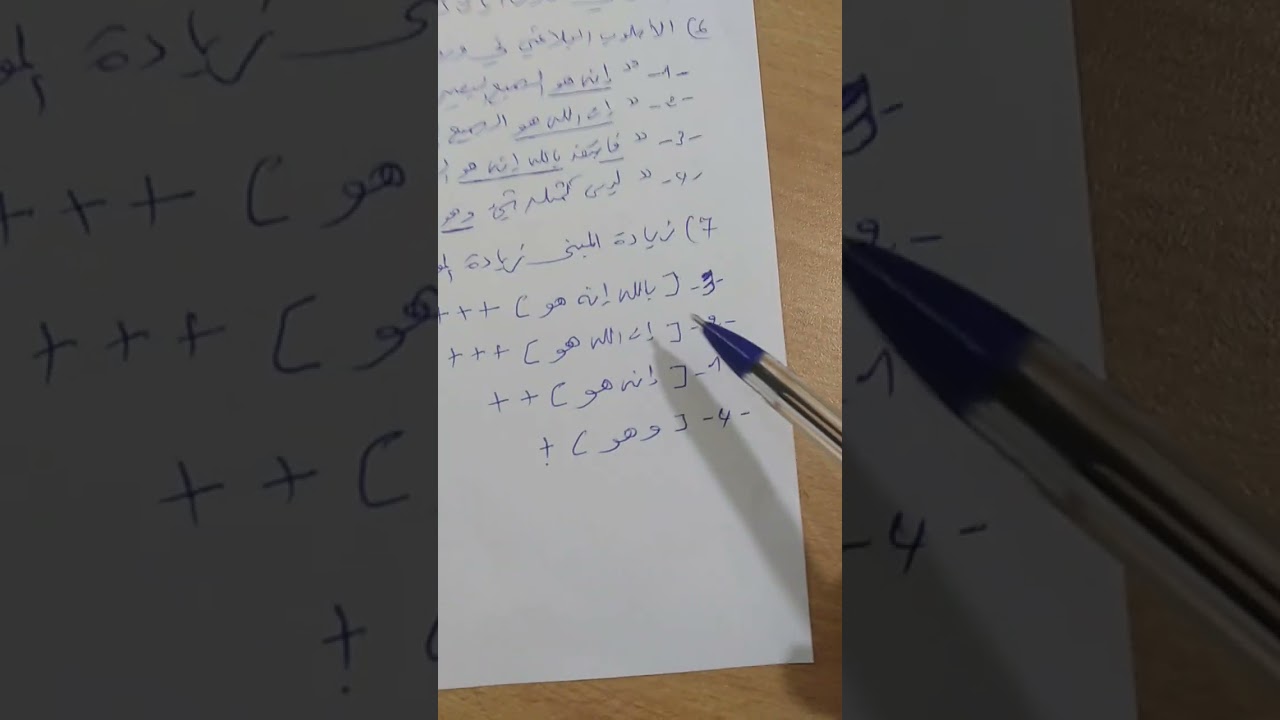 6) الأسلوب البلاغي في
-1- " إنه هو السميع البصير
-2- " إن الله هو السميع
-3- " فاستعذ بالله إنه هو
-4- " ليس كمثله شيء وهو
7) زيادة المبنى زيادة
-3- [ بالله إنه هو ] +++
-2- [ إن الله هو ] +++
-1- [ إنه هو ] ++
-4- [ وهو ] +